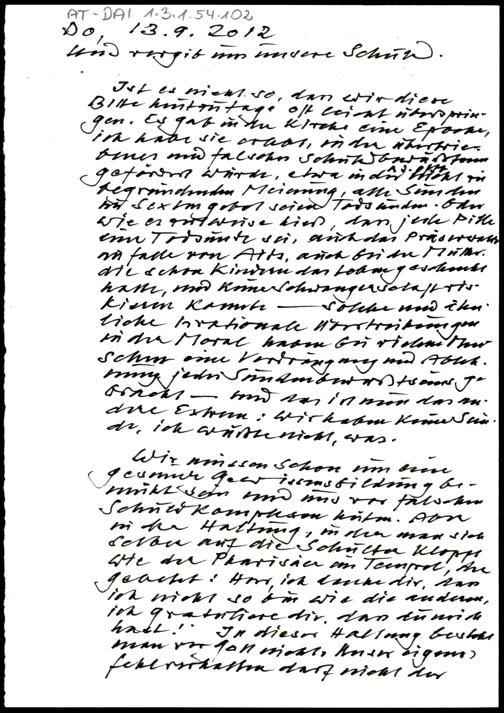 AT-DAI 1.3.1.54.102
Do, 13.9.2012
Und vergib uns unsere Schuld.
Ist es nicht so, dass wir diese
Bitte heutzutage oft leicht übersprin-
gen. Es gab in der Kirche eine Epoche,
ich habe sie erlebt, in der übertrie-
benes und falsches Schuldbewußtsein
gefördert wurde, etwa in der nicht zu
begründenden Meinung, alle Sünden
im Sextum gebot seien Todsünden. Oder
wie es zeitweise hieß, dass jede Pille
eine Todsünde sei, auch das Präservativ
im Falle von Aids, auch bei der Mutter,
die schon Kindern das Leben geschenkt
hatte, und keine Schwangerschaft ris-
kieren konnte — Solche und ähn-
liche irrationale Übertreibungen
in der Moral haben bei vielen Men-
schen eine Verdrängung und Ableh-
nung jedes Sündenbewußtseins ge-
bracht — und das ist nun das an-
dere Extrem: Wir haben keine Sün-
de, ich wüßte nicht, was.
Wir müssen schon um eine
gesunde Gewissensbildung be-
müht sein und uns vor falschen
Schuldkomplexen hüten. Aber
in der Haltung, in der man sich
selber auf die Schulter klopft
wie der Pharisäer im Tempel, der
gebetet: Herr, ich danke dir, dass
ich nicht so bin wie die anderen,
ich gratuliere dir, dass du mich
hast! In dieser Haltung besteht
man vor Gott nicht. Unser eigenes
Fehlverhalten darf nicht der